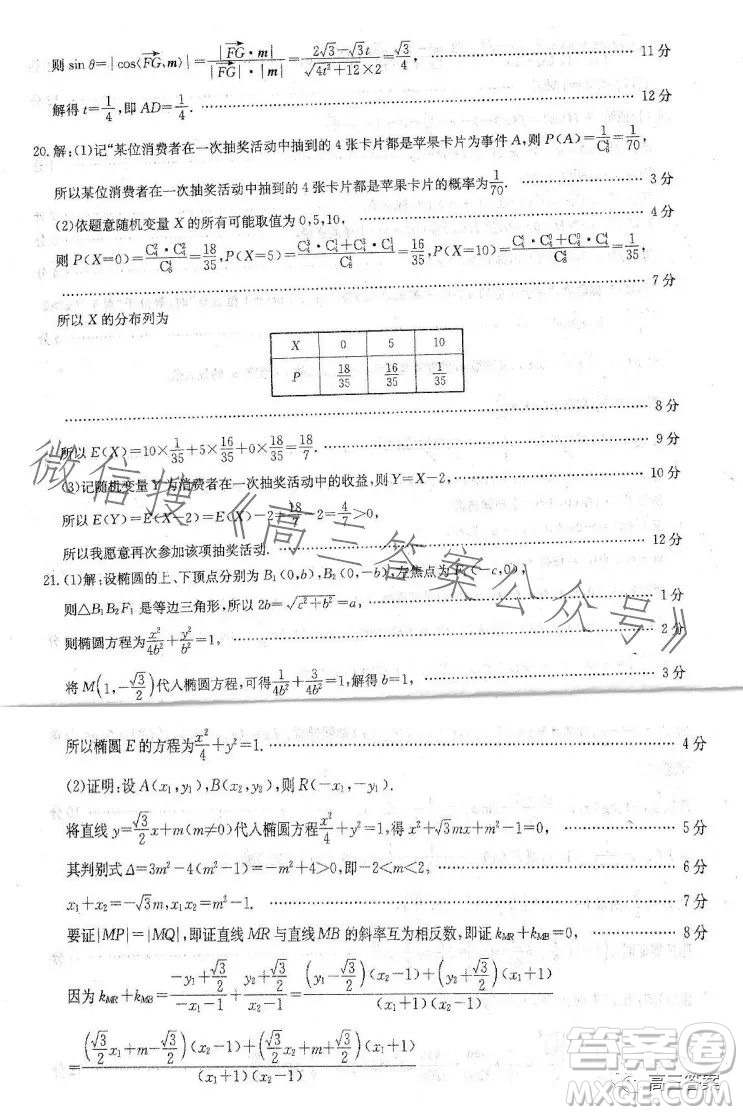 则 sin θ=|cos⟨FG,m⟩|=|FG·m|/(|FG|·|m|)=(2√3−√3t)/(√(4t²+12)×2)=√3/4, ………… 11分
解得 t=1/4,即 AD=1/4. ………… 12分
20.解:(1)记“某位消费者在一次抽奖活动中抽到的4张卡片都是苹果卡片为事件A,则 P(A)=1/C₈⁴=1/70,
所以某位消费者在一次抽奖活动中抽到的4张卡片都是苹果卡片的概率为1/70. ………… 3分
(2)依题意随机变量X的所有可能取值为0,5,10, ………… 4分
则 P(X=0)=C₄²·C₄²/C₈⁴=18/35,P(X=5)=(C₄³·C₄¹+C₄¹·C₄³)/C₈⁴=16/35,P(X=10)=(C₄⁴+C₄⁴)/C₈⁴=1/35,
………… 7分
所以X的分布列为
X 0 5 10
P 18/35 16/35 1/35
………… 8分
所以 E(X)=10×1/35+5×16/35+0×18/35=18/7. ………… 9分
(3)记随机变量Y为消费者在一次抽奖活动中的收益,则 Y=X−2, ………… 10分
所以 E(Y)=E(X−2)=E(X)−2=18/7−2=4/7>0,
所以我愿意再次参加该项抽奖活动. ………… 12分
21.(1)解:设椭圆的上、下顶点分别为 B₁(0,b),B₂(0,−b),左焦点为 F₁(−c,0),
则△B₁B₂F₁是等边三角形,所以 2b=√(c²+b²)=a, ………… 1分
则椭圆方程为 x²/4b²+y²/b²=1, ………… 2分
将 M(1,−√3/2)代入椭圆方程,可得 1/4b²+3/4b²=1,解得 b=1, ………… 3分
所以椭圆E的方程为 x²/4+y²=1. ………… 4分
(2)证明:设 A(x₁,y₁),B(x₂,y₂),则 R(−x₁,−y₁).
将直线 y=√3/2x+m(m≠0)代入椭圆方程 x²/4+y²=1,得 x²+√3mx+m²−1=0, ………… 5分
其判别式 Δ=3m²−4(m²−1)=−m²+4>0,即−2<m<2. ………… 6分
x₁+x₂=−√3m,x₁x₂=m²−1. ………… 7分
要证|MP|=|MQ|,即证直线MR与直线MB的斜率互为相反数,即证 k_MR+k_MB=0. ………… 8分
因为 k_MR+k_MB=(−y₁+√3/2)/(−x₁−1)+(y₂+√3/2)/(x₂−1)=((y₁−√3/2)(x₂−1)+(y₂+√3/2)(x₁+1))/((x₁+1)(x₂−1))
=((√3/2x₁+m−√3/2)(x₂−1)+(√3/2x₂+m+√3/2)(x₁+1))/((x₁+1)(x₂−1))
微信搜《高三答案公众号》
答案圈
高三答案
MXQE.COM